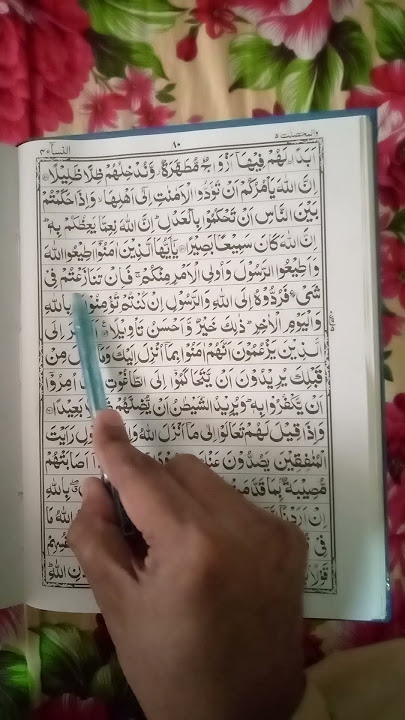 والمحصنت ٥ ٨٠ النساء ٤
اَبَدًا لَهُمْ فِيْهَا اَزْوَاجٌ مُّطَهَّرَةٌ وَّنُدْخِلُهُمْ ظِلًّا ظَلِيْلًا
اِنَّ اللّٰهَ يَاْمُرُكُمْ اَنْ تُؤَدُّوا الْاَمٰنٰتِ اِلٰٓى اَهْلِهَا وَاِذَا حَكَمْتُمْ
بَيْنَ النَّاسِ اَنْ تَحْكُمُوْا بِالْعَدْلِ اِنَّ اللّٰهَ نِعِمَّا يَعِظُكُمْ بِهٖ
اِنَّ اللّٰهَ كَانَ سَمِيْعًۢا بَصِيْرًا يٰٓاَيُّهَا الَّذِيْنَ اٰمَنُوْٓا اَطِيْعُوا اللّٰهَ
وَاَطِيْعُوا الرَّسُوْلَ وَاُولِى الْاَمْرِ مِنْكُمْ فَاِنْ تَنَازَعْتُمْ فِيْ
شَيْءٍ فَرُدُّوْهُ اِلَى اللّٰهِ وَالرَّسُوْلِ اِنْ كُنْتُمْ تُؤْمِنُوْنَ بِاللّٰهِ
وَالْيَوْمِ الْاٰخِرِ ذٰلِكَ خَيْرٌ وَّاَحْسَنُ تَاْوِيْلًا اِلَى
الَّذِيْنَ يَزْعُمُوْنَ اَنَّهُمْ اٰمَنُوْا بِمَآ اُنْزِلَ اِلَيْكَ مِنْ
قَبْلِكَ يُرِيْدُوْنَ اَنْ يَّتَحَاكَمُوْٓا اِلَى الطَّاغُوْتِ اُمِرُوْٓا
اَنْ يَّكْفُرُوْا بِهٖ وَيُرِيْدُ الشَّيْطٰنُ اَنْ يُّضِلَّهُمْ بَعِيْدًا
وَاِذَا قِيْلَ لَهُمْ تَعَالَوْا اِلٰى مَآ اَنْزَلَ اللّٰهُ رَاَيْتَ
الْمُنٰفِقِيْنَ يَصُدُّوْنَ اَصَابَتْهُمْ
مُّصِيْبَةٌۢ بِمَا بِاللّٰهِ
اِنْ اَرَدْنَآ اللّٰهُ مَا
فِيْ
اللّٰهِ